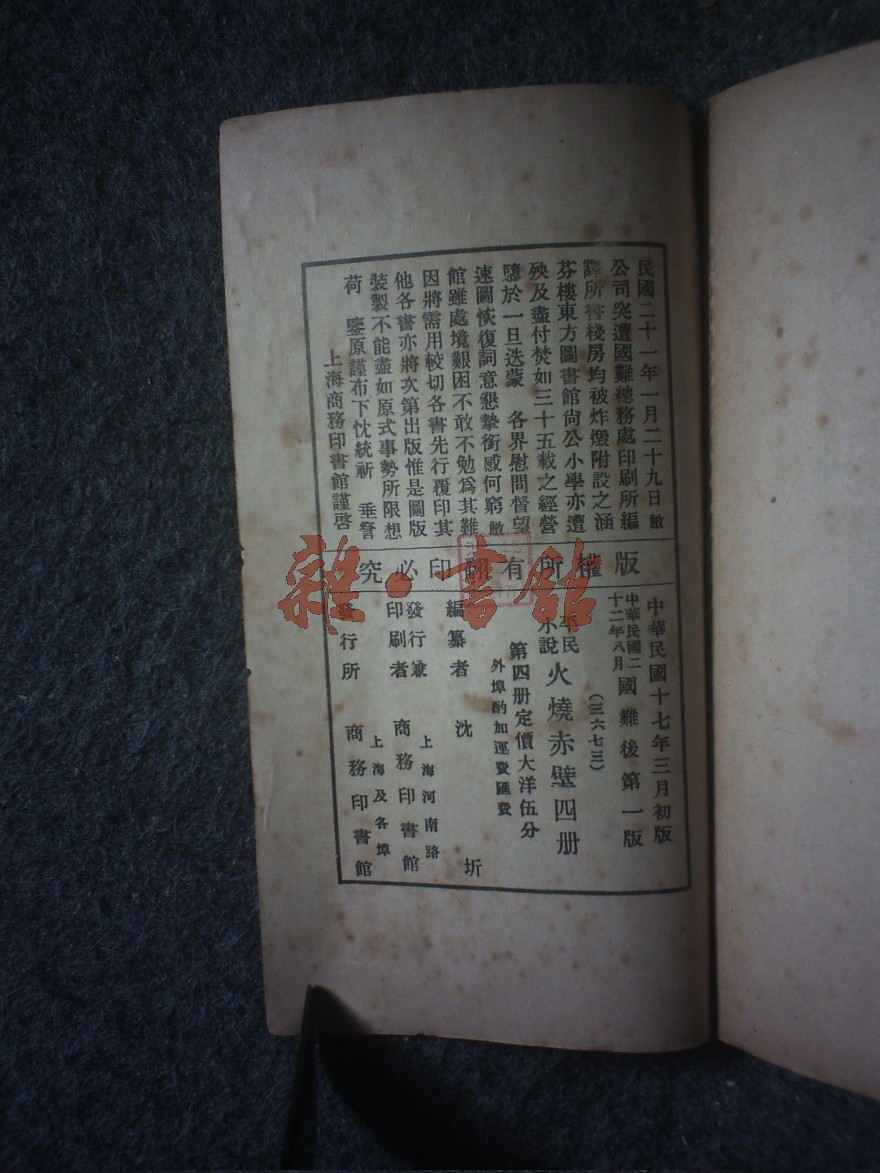 民國二十一年一月二十九日敝
公司突遭國難總務處印刷所編
譯所書棧房均被炸燬附設之涵
芬樓東方圖書館尚公小學亦遭
殃及盡付焚如三十五載之經營
隳於一旦迭蒙　各界慰問督望
速圖恢復詞意懇摯銜感何窮敝
館雖處境艱困不敢不勉為其難
因將需用較切各書先行覆印其
他各書亦將次第出版惟是圖版
裝製不能盡如原式事勢所限想
荷　鑒原謹布下忱統祈　垂詧
上海商務印書館謹啓
版權所有翻印必究
中華民國十七年三月初版
中華民國二十二年八月國難後第一版
（三六七三）
平民小說火燒赤壁四册
第四册定價大洋伍分
外埠酌加運費匯費
編纂者　沈　圻
發行兼印刷者　上海河南路　商務印書館
發行所　上海及各埠　商務印書館
雜·書館